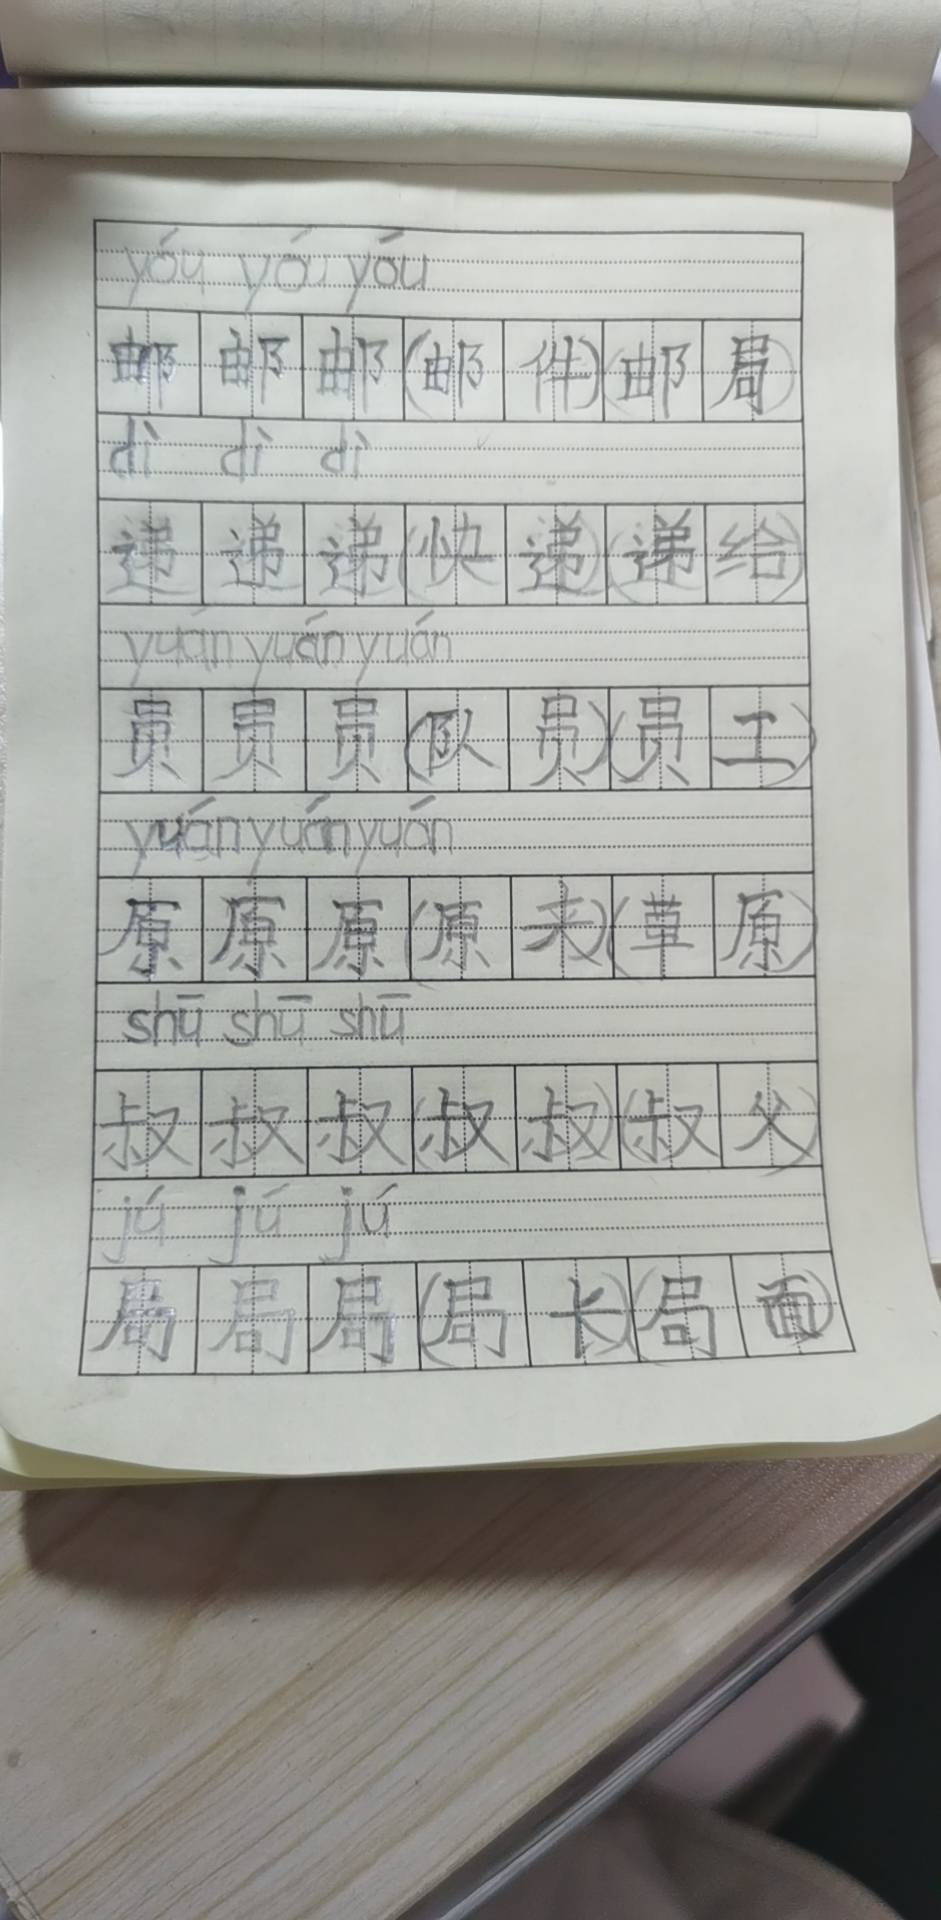 yóu yóu yóu
邮 邮 邮 (邮 件) (邮 局)
dì dì dì
递 递 递 (快 递) (递 给)
yuán yuán yuán
员 员 员 (队 员) (员 工)
yuán yuán yuán
原 原 原 (原 来) (草 原)
shū shū shū
叔 叔 叔 (叔 叔) (叔 父)
jú jú jú
局 局 局 (局 长) (局 面)